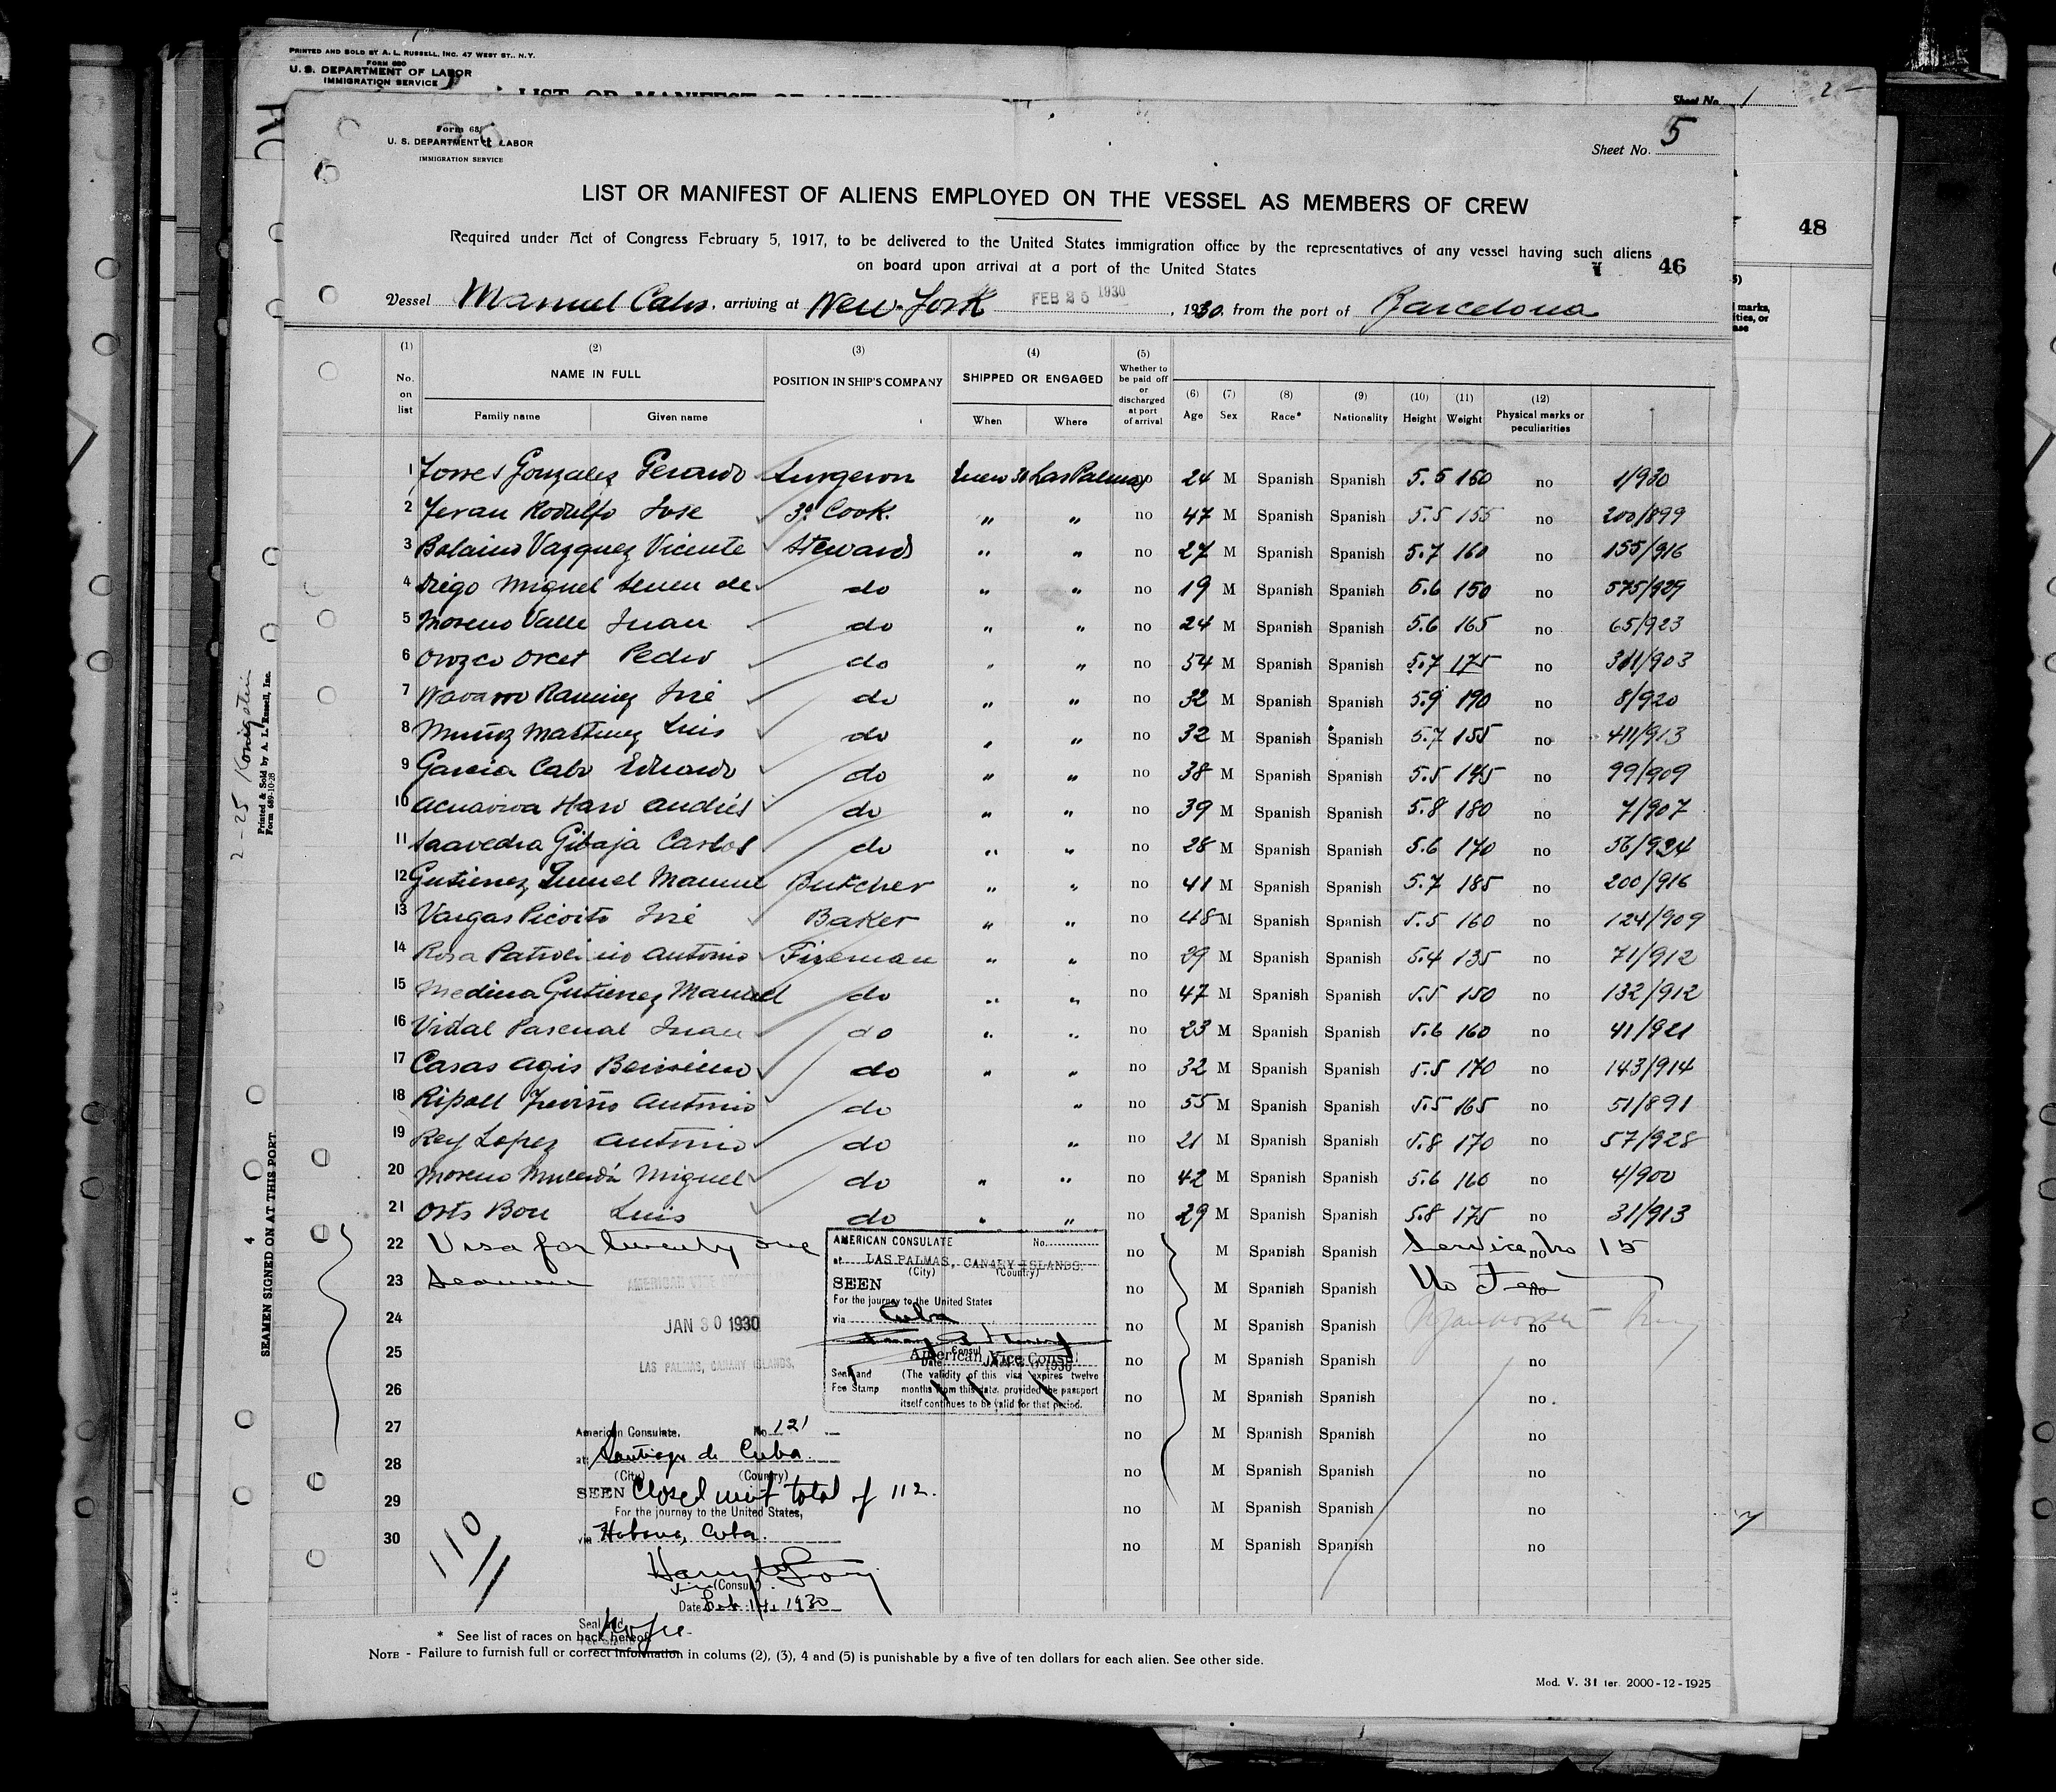 PRINTED AND SOLD BY A. L. RUSSELL, INC. 47 WEST ST., N.Y.
FORM 680
U. S. DEPARTMENT OF LABOR
IMMIGRATION SERVICE
Sheet No. 1
2
48
Form 68
U. S. DEPARTMENT LABOR
IMMIGRATION SERVICE
Sheet No. 5
LIST OR MANIFEST OF ALIENS EMPLOYED ON THE VESSEL AS MEMBERS OF CREW
Required under Act of Congress February 5, 1917, to be delivered to the United States immigration office by the representatives of any vessel having such aliens
on board upon arrival at a port of the United States
46
Vessel Manuel Calvo, arriving at New-York FEB 25 1930, 1930, from the port of Barcelona
(1) No. on list
(2) NAME IN FULL Family name Given name
(3) POSITION IN SHIP'S COMPANY
(4) SHIPPED OR ENGAGED When Where
(5) Whether to be paid off or discharged at port of arrival
(6) Age (7) Sex (8) Race* (9) Nationality (10) Height (11) Weight (12) Physical marks or peculiarities
1 Torres Gonzalez Gerardo Surgeon Enero 30 Las Palmas no 24 M Spanish Spanish 5.5 150 no 1/930
2 Teran Rodulfo Jose 3º Cook. " " no 47 M Spanish Spanish 5.5 155 no 200/899
3 Bolaino Vazquez Vicente Steward " " no 27 M Spanish Spanish 5.7 160 no 155/916
4 Diego Miguel de do " " no 19 M Spanish Spanish 5.6 150 no 575/929
5 Moreno Valle Juan do " " no 24 M Spanish Spanish 5.6 165 no 65/923
6 Orozco Orcet Pedro do " " no 54 M Spanish Spanish 5.7 175 no 311/903
7 Navarro Ramirez José do " " no 32 M Spanish Spanish 5.9 190 no 8/920
8 Muñoz Martinez Luis do " " no 32 M Spanish Spanish 5.7 155 no 411/913
9 Garcia Cabo Eduardo do " " no 38 M Spanish Spanish 5.5 145 no 99/909
10 Acuaviva Haro Andrés do " " no 39 M Spanish Spanish 5.8 180 no 7/907
11 Saavedra Gibaja Carlos do " " no 28 M Spanish Spanish 5.6 170 no 56/924
12 Gutierrez Manuel Butcher " " no 41 M Spanish Spanish 5.7 185 no 200/916
13 Vargas Picoito José Baker " " no 48 M Spanish Spanish 5.5 160 no 124/909
14 Rosa Antonio Fireman " " no 29 M Spanish Spanish 5.4 135 no 71/912
15 Medina Gutierrez Manuel do " " no 47 M Spanish Spanish 5.5 150 no 132/912
16 Vidal Pascual Juan do " " no 23 M Spanish Spanish 5.6 160 no 41/921
17 Casas Agis do " " no 32 M Spanish Spanish 5.5 170 no 143/914
18 Ripoll Treviño Antonio do " no 55 M Spanish Spanish 5.5 165 no 51/891
19 Rey Lopez Antonio do " no 21 M Spanish Spanish 5.8 170 no 57/928
20 Moreno Miguel do " " no 42 M Spanish Spanish 5.6 160 no 4/900
21 Orts Bou Luis do " " no 29 M Spanish Spanish 5.8 175 no 31/913
22 Visa for twenty one no M Spanish Spanish Service No 15 no
23 Seamen no M Spanish Spanish No Fee no
24 no M Spanish Spanish no
25 no M Spanish Spanish no
26 no M Spanish Spanish no
27 no M Spanish Spanish no
28 no M Spanish Spanish no
29 no M Spanish Spanish no
30 no M Spanish Spanish no
JAN 30 1930
LAS PALMAS, CANARY ISLANDS.
AMERICAN CONSULATE No.
at LAS PALMAS, CANARY ISLANDS.
(City) (Country)
SEEN
For the journey to the United States
via Cuba
American Vice Consul
Date 1930
Seal and Fee Stamp
(The validity of this visa expires twelve
months from this date, provided the passport
itself continues to be valid for that period.
American Consulate. No 121
at Santiago de Cuba.
(City) (Country)
SEEN Closed with total of 112.
For the journey to the United States,
via Habana, Cuba.
Vice (Consul)
Date Feb 14, 1930
Seal and
Fee Stamp
No fee
110
* See list of races on back hereof
NOTE - Failure to furnish full or correct information in colums (2), (3), 4 and (5) is punishable by a five of ten dollars for each alien. See other side.
Mod. V. 31 ter. 2000-12-1925
2-25 Konigstein
Printed & Sold by A. L. Russell, Inc.
Form 689-10-28
SEAMEN SIGNED ON AT THIS PORT 4